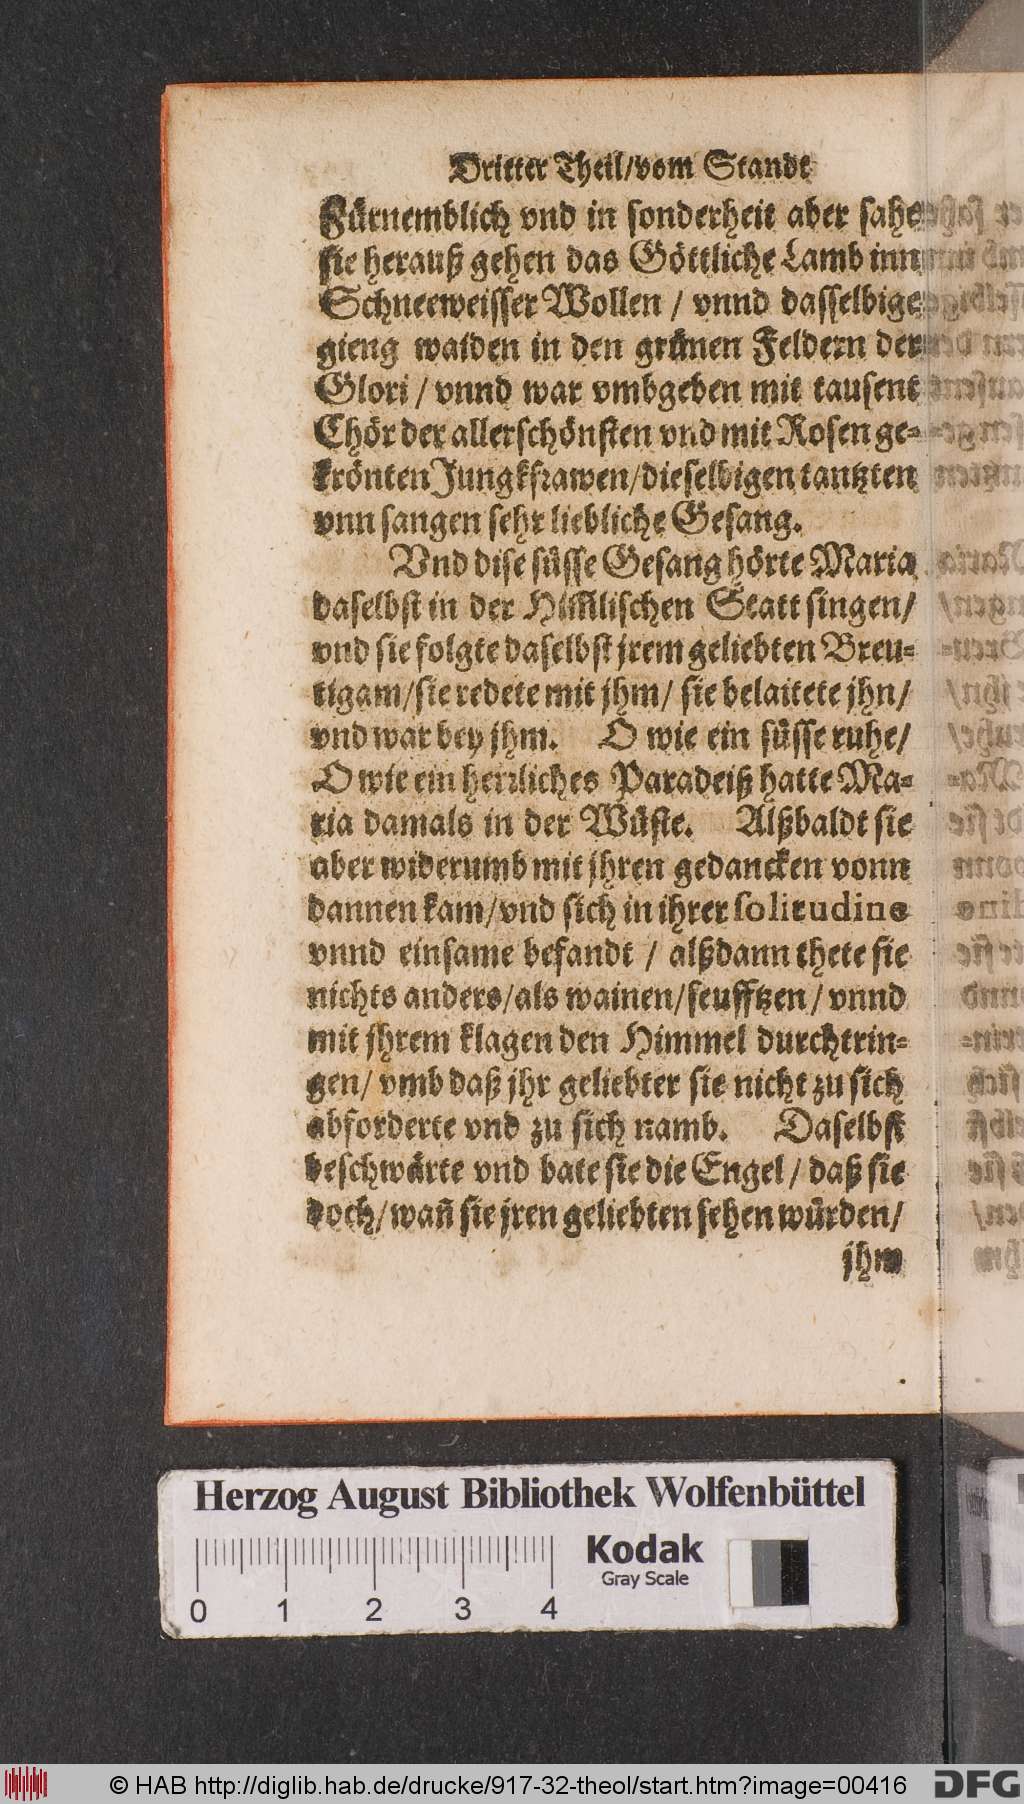 Dritter Theil/vom Standt
Fürnemblich vnd in sonderheit aber sahe
sie herauß gehen das Göttliche Lamb inn
Schneeweisser Wollen / vnnd dasselbige
gieng waiden in den grünen Feldern der
Glori / vnnd war vmbgeben mit tausent
Chör der allerschönsten vnd mit Rosen ge-
krönten Jungkfrawen/dieselbigen tantzten
vnn sangen sehr liebliche Gesang.
Vnd dise süsse Gesang hörte Maria
daselbst in der Him̃lischen Statt singen/
vnd sie folgte daselbst jrem geliebten Breu-
tigam/sie redete mit jhm/ sie belaitete jhn/
vnd war bey jhm. O wie ein süsse ruhe/
O wie ein herrliches Paradeiß hatte Ma-
ria damals in der Wüste. Alßbaldt sie
aber widerumb mit jhren gedancken vonn
dannen kam/vnd sich in ihrer solitudine
vnnd einsame befandt / alßdann thete sie
nichts anders/als wainen/seufftzen/ vnnd
mit jhrem klagen den Himmel durchtrin-
gen/ vmb daß jhr geliebter sie nicht zu sich
abforderte vnd zu sich namb. Daselbst
beschwärte vnd bate sie die Engel / daß sie
doch/wañ sie jren geliebten sehen würden/
jhm
Herzog August Bibliothek Wolfenbüttel
Kodak
Gray Scale
0 1 2 3 4
© HAB http://diglib.hab.de/drucke/917-32-theol/start.htm?image=00416
DFG